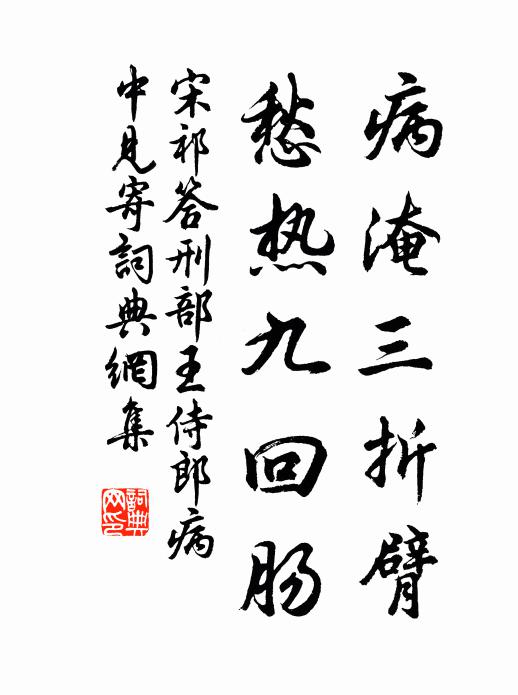 病淹三折臂
愁热九回肠
宋祁答刑部王侍郎病
中見寄詞典網集
詞典
网印